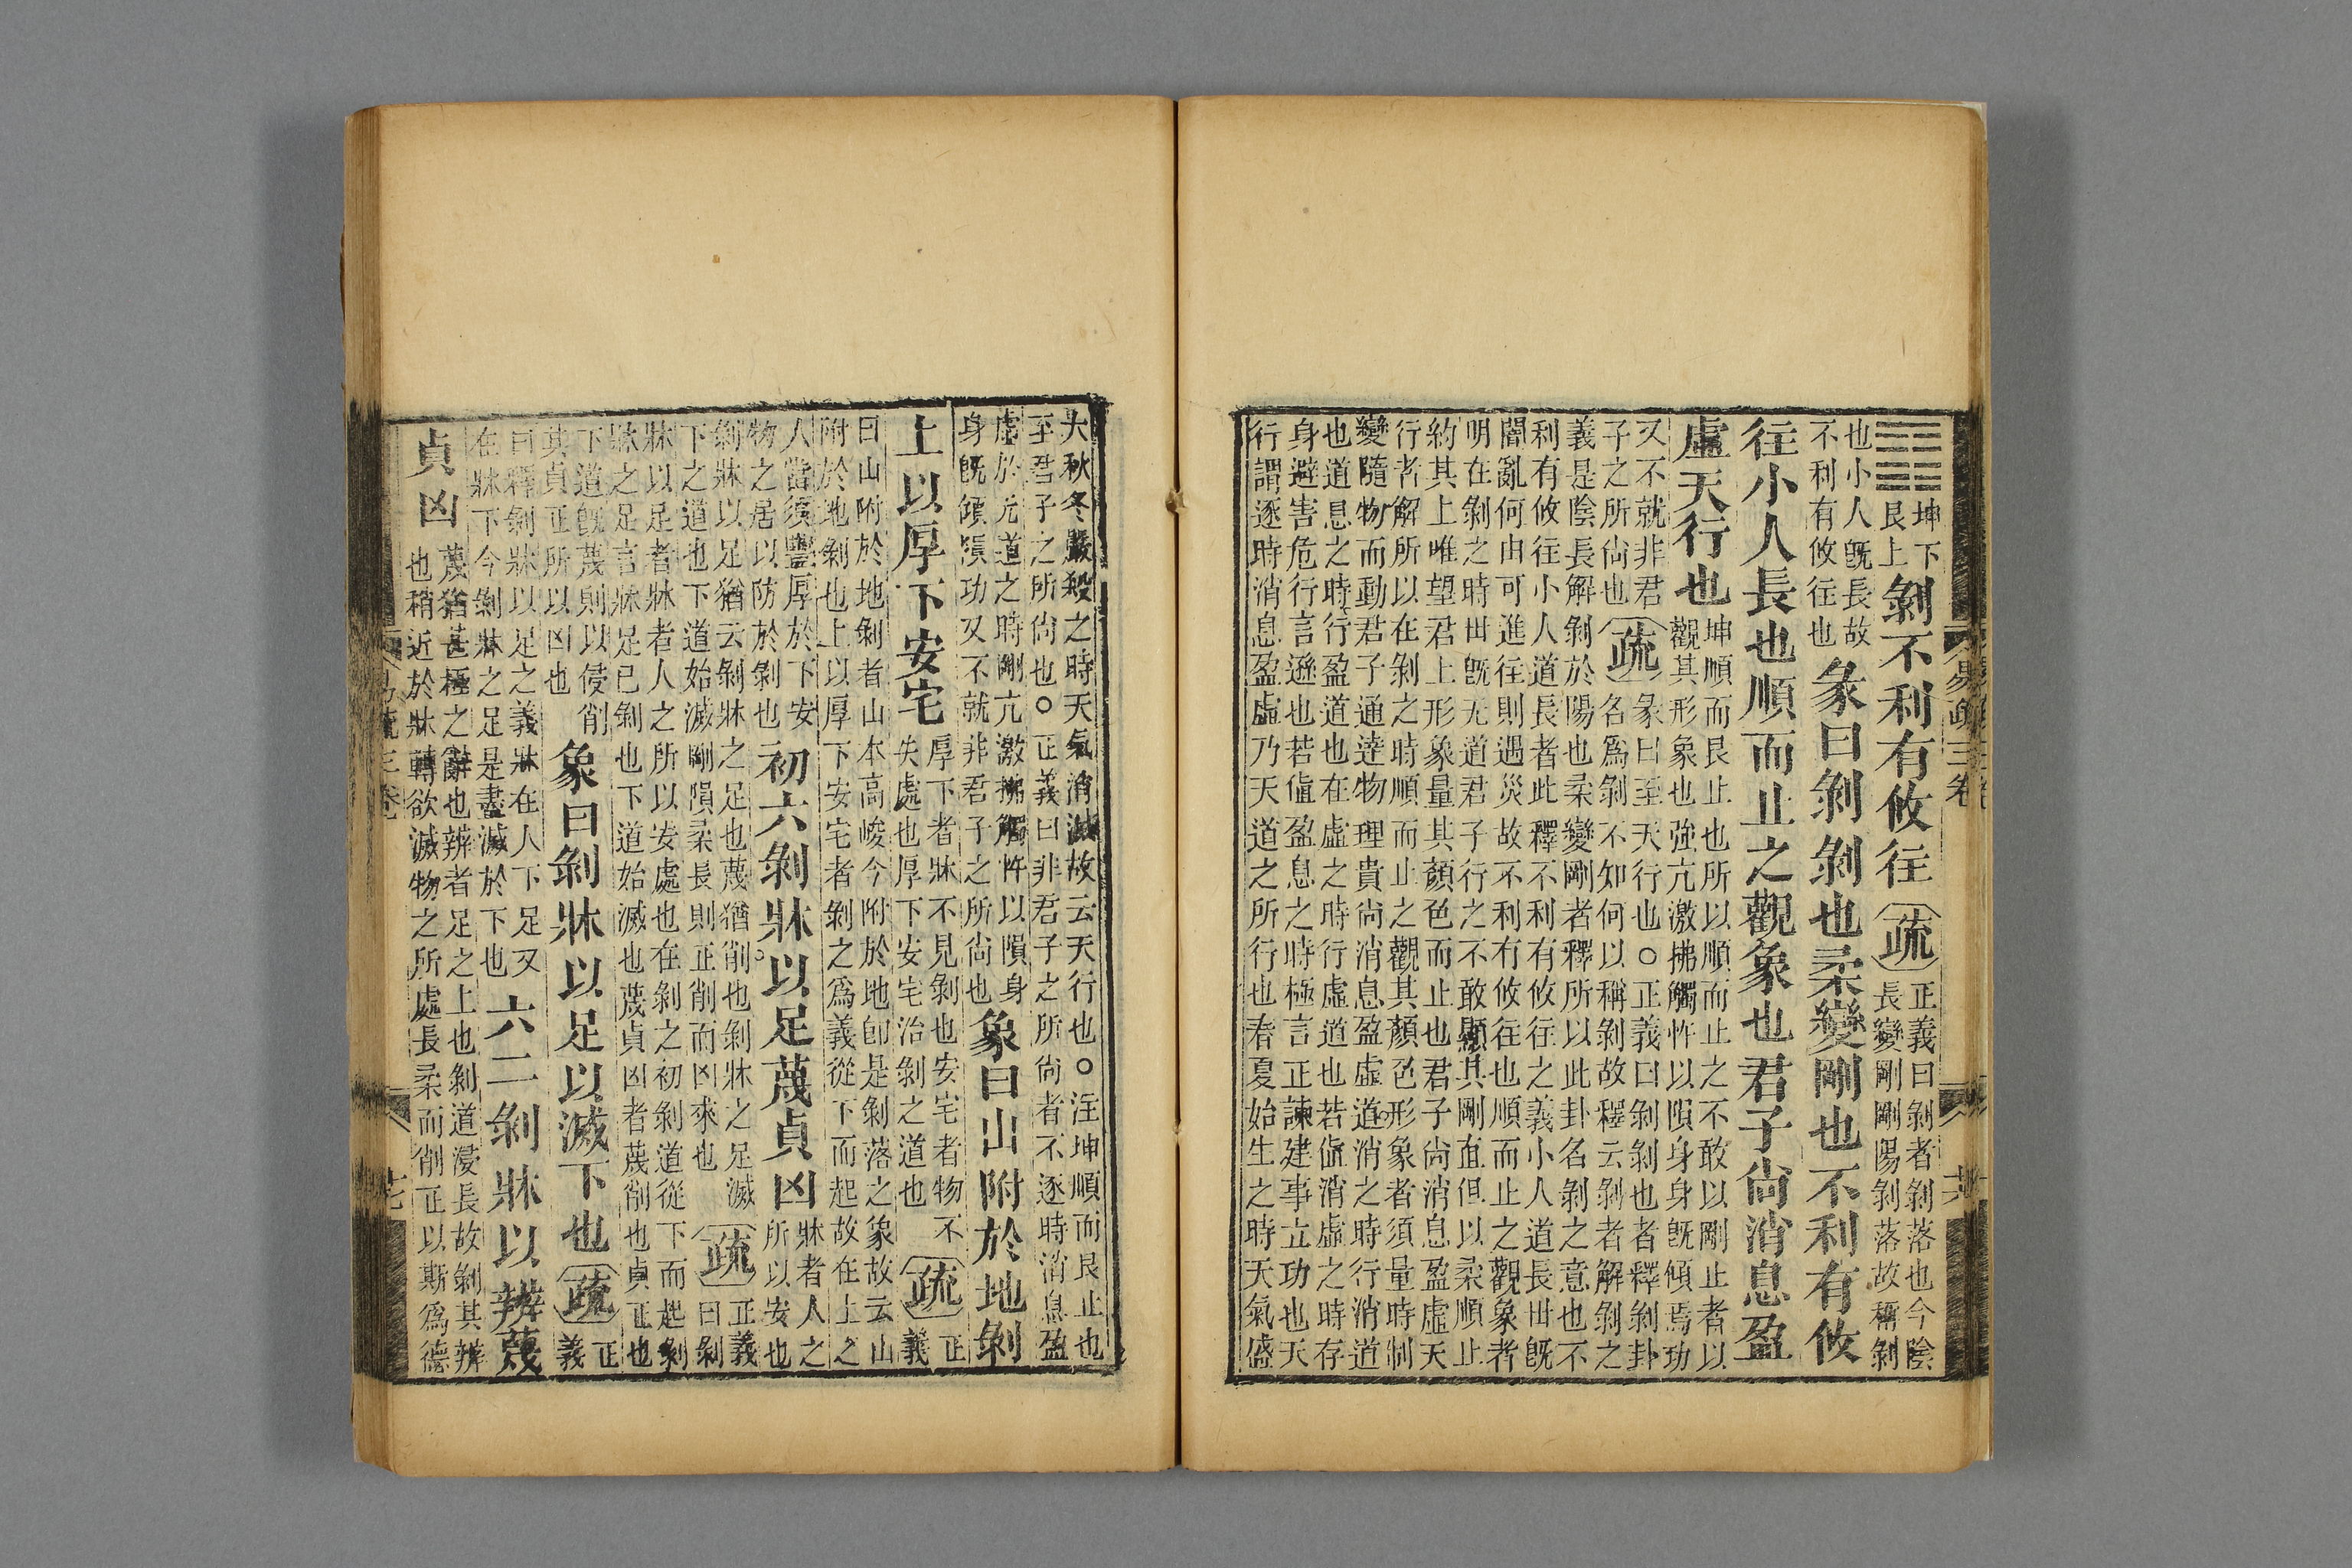 ䷖坤下艮上剝不利有攸往疏正義曰剝者剝落也今陰長變剛剛陽剝落故稱剝
也小人旣長故不利有攸往也彖曰剝剝也柔變剛也不利有攸
往小人長也順而止之觀象也君子尙消息盈
虛天行也坤順而艮止也所以順而止之不敢以剛止者以觀其形象也強亢激拂觸忤以隕身身旣傾焉功
又不就非君子之所尙也疏彖曰至天行也○正義曰剝剝也者釋剝卦名爲剝不知何以稱剝故釋云剝者解剝之
義是陰長解剝於陽也柔變剛者釋所以此卦名剝之意也不
利有攸往小人道長者此釋不利有攸往之義小人道長世旣
闇亂何由可進往則遇災故不利有攸往也順而止之觀象者
明在剝之時世旣无道君子行之不敢顯其剛直但以柔順止
約其上唯望君上形象量其顏色而止也君子尙消息盈虛天
行者解所以在剝之時順而止之觀其顏色形象者須量時制
變隨物而動君子通達物理貴尙消息盈虛道消之時行消道
也道息之時行盈道也在虛之時行虛道也若値消虛之時存
身避害危行言遜也若値盈息之時極言正諫建事立功也天
行謂逐時消息盈虛乃天道之所行也春夏始生之時天氣盛
易疏三卷
大秋冬嚴殺之時天氣消滅故云天行也○注坤順而艮止也
至君子之所尙也○正義曰非君子之所尙者不逐時消息盈
虛於无道之時剛亢激拂觸忤以隕身
身旣傾隕功又不就非君子之所尙也象曰山附於地剝
上以厚下安宅厚下者牀不見剝也安宅者物不失處也厚下安宅治剝之道也疏正義
曰山附於地剝者山本高峻今附於地卽是剝落之象故云山
附於地剝也上以厚下安宅者剝之爲義從下而起故在上之
人當須豐厚於下安物之居以防於剝也初六剝牀以足蔑貞凶牀者人之所以安也
剝牀以足猶云剝牀之足也蔑猶削也剝牀之足滅下之道也下道始滅剛隕柔長則正削而凶來也疏正義曰剝
牀以足者牀者人之所以安處也在剝之初剝道從下而起剝
牀之足言牀足已剝也下道始滅也蔑貞凶者蔑削也貞正也
下道旣蔑則以侵削其貞正所以凶也象曰剝牀以足以滅下也疏正義
曰釋剝牀以足之義牀在人下足又在牀下今剝牀之足是盡滅於下也六二剝牀以辨蔑
貞凶蔑猶甚極之辭也辨者足之上也剝道浸長故剝其辨也稍近於牀轉欲滅物之所處長柔而削正以斯爲德